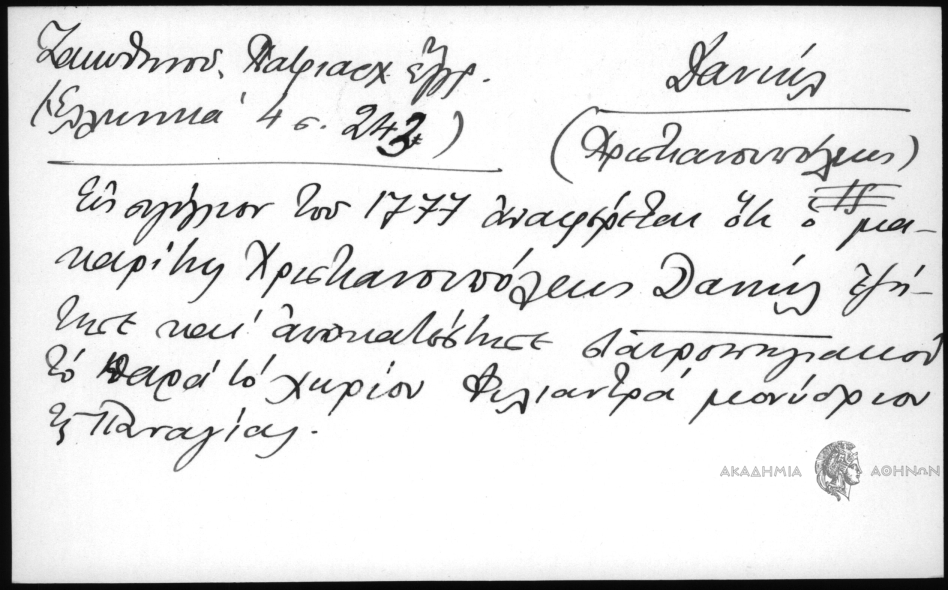 Ζακυθηνοῦ, Πατριαρχ. ἔγγρ.
(Ἑλληνικά 4 σ. 243)
Δανιήλ
(Χριστιανουπόλεως)
Εἰς σιγίλλιον τοῦ 1777 ἀναφέρεται ὅτι ὁ μα-
καρίτης Χριστιανουπόλεως Δανιήλ ἐζή-
τησε καί ἀποκατέστησε σταυροπηγιακόν
τό παρά τό χωρίον Φιλιατρά μονύδριον
τῆς Παναγίας.
ΑΚΑΔΗΜΙΑ ΑΘΗΝΩΝ